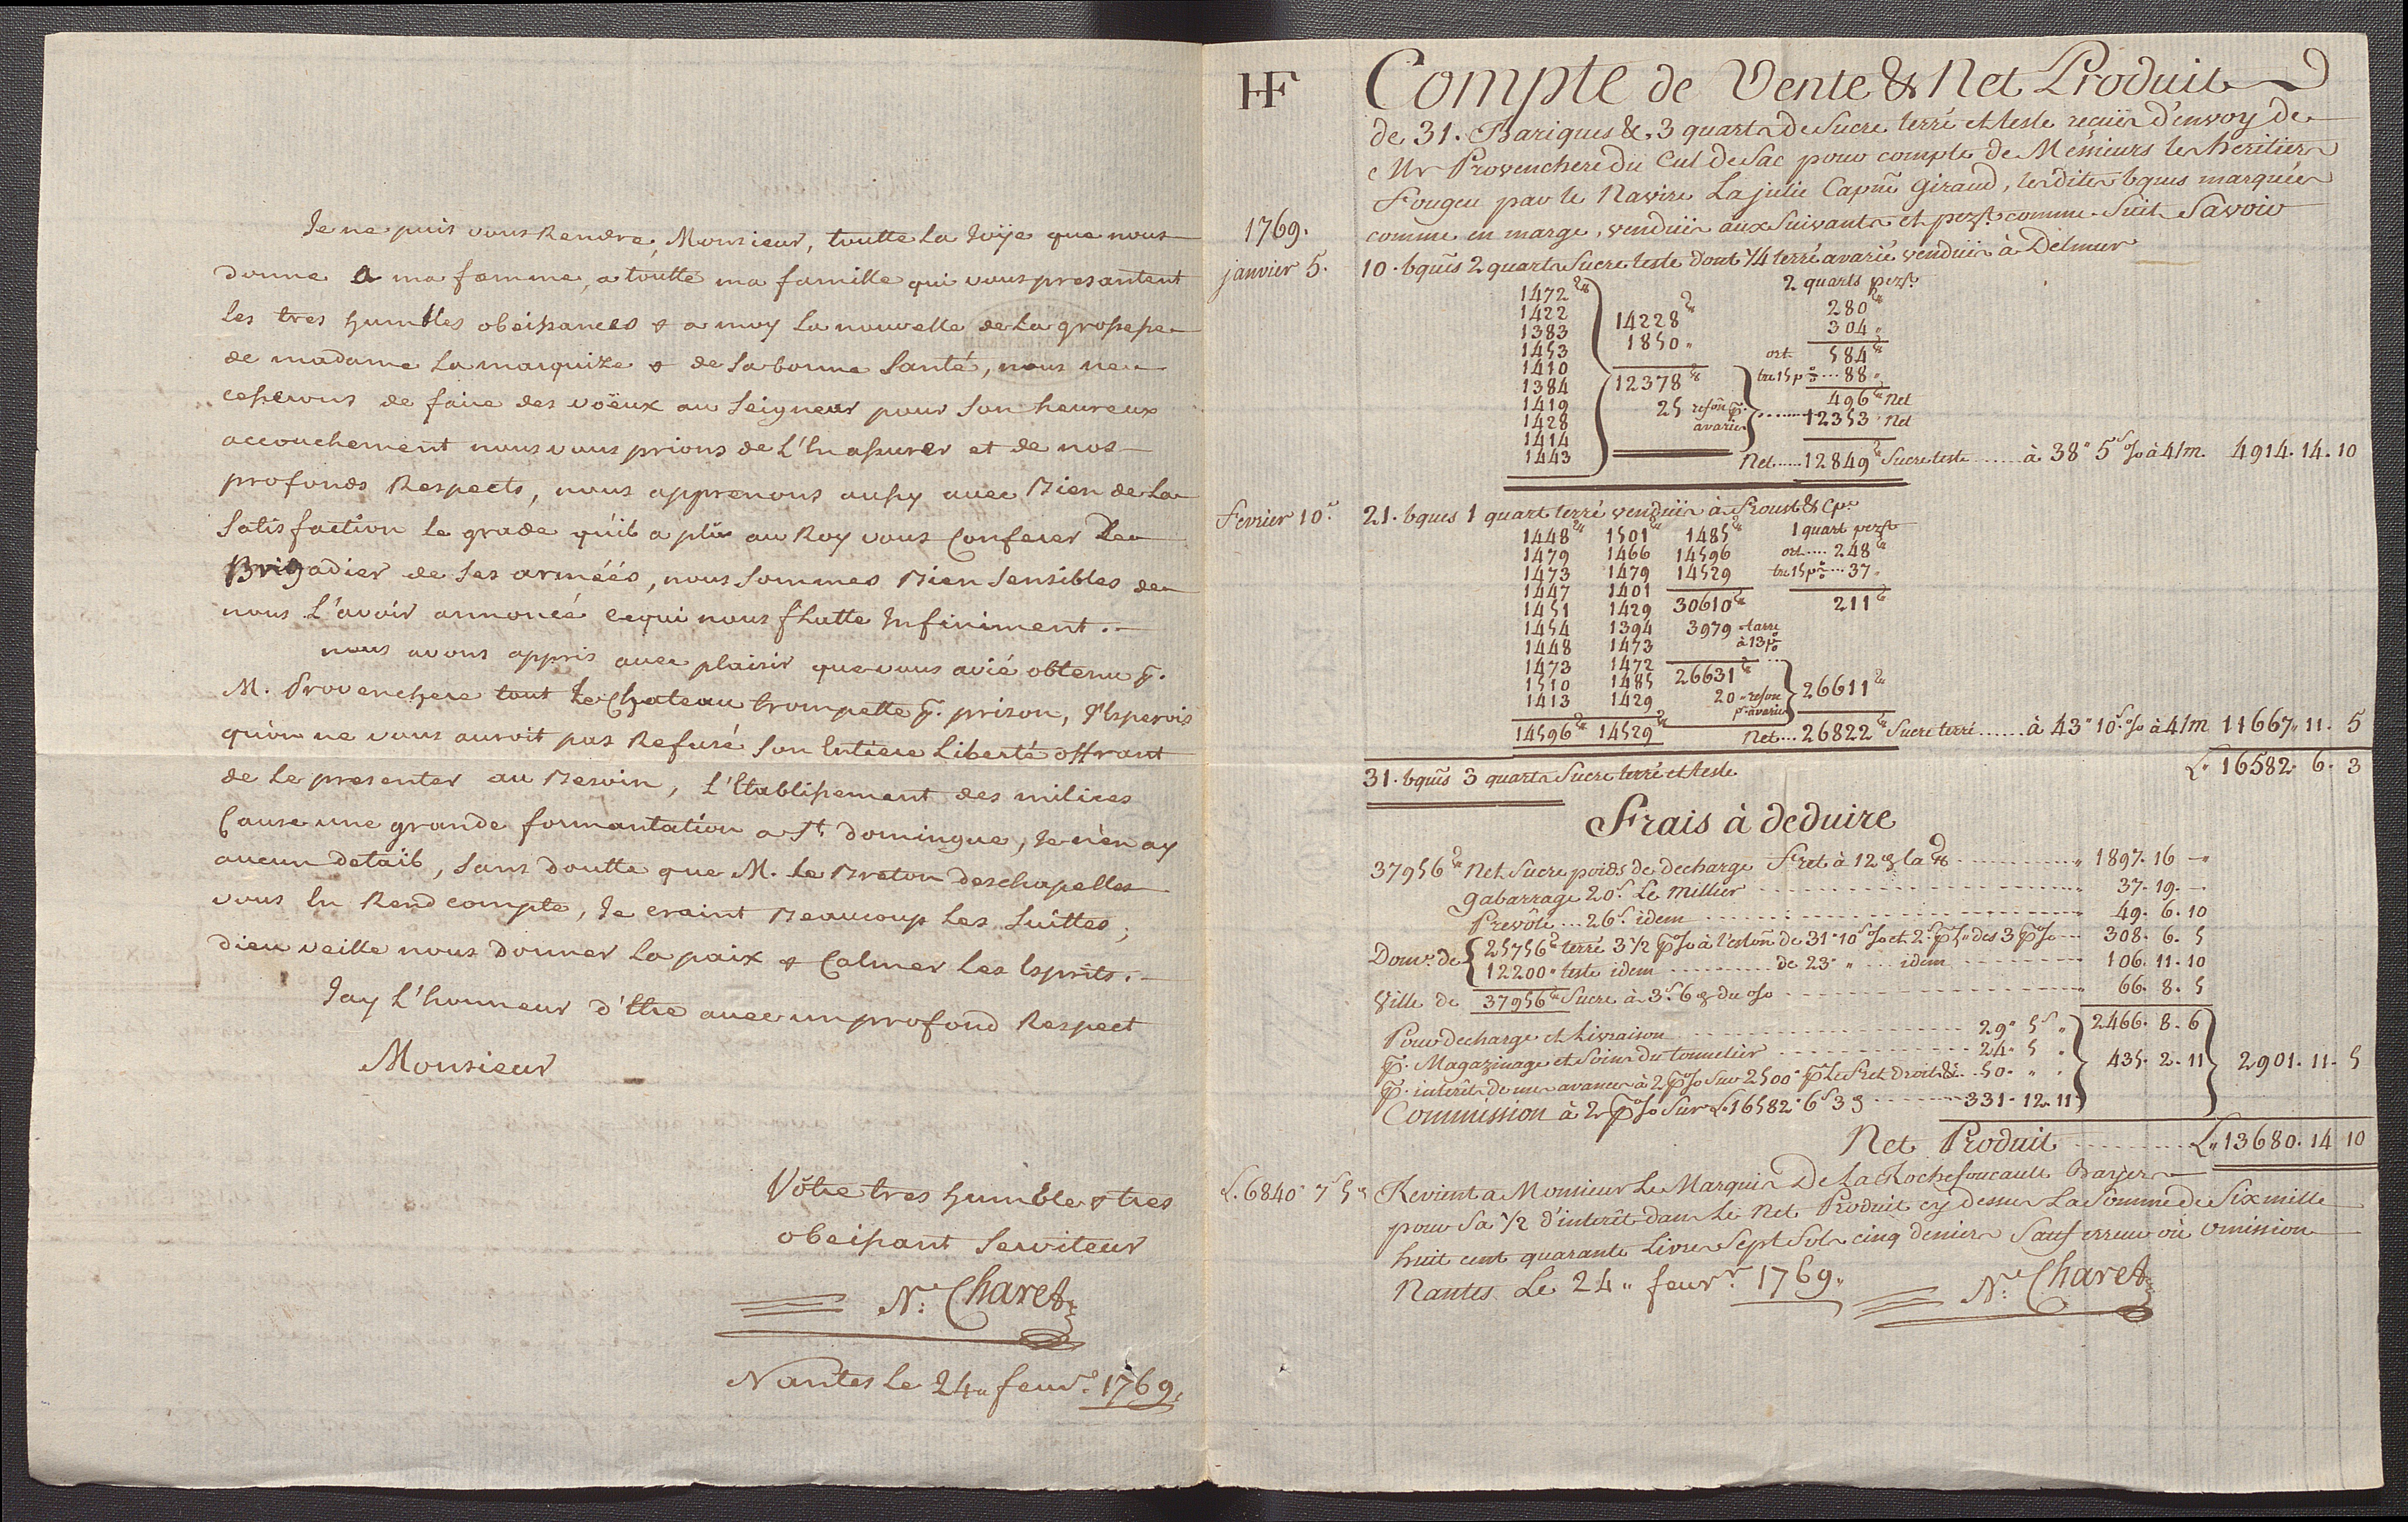 Je ne puis vous Rendre, Monsieur, toutte La Joÿe que nous
donne a ma famme, a toutte ma famille qui vous presantent
les tres humbles obeissances & a moy La nouvelle de La grossesse
de madame La marquize & de sa bonne Santé, nous ne
cesserons de faire des voëux au Seigneur pour son heureux
accouchement nous vous prions de L'en assurer et de nos
profonds Respects, nous apprenons aussy avec Bien de La
Satisfaction le grade qu'il a plû au Roy vous Conferer De
Brigadier de ses arméés, nous sommes Bien sensibles de
nous L'avoir annoncé cequi nous flatte Infiniment.
nous avons appris avec plaisir que vous avié obtenu p.
M. Provenchere tout Le Chateau trompette p. prison, J'Esperois
qu'on ne vous auroit pas Refusé son Entiere Liberté offrant
de Le presenter au Besoin, L'Etablissement des milices
Cause une grande formantation a St. domingue, Je n'en ay
aucun detail, sans doutte que M. Le Breton deschapelles
vous En Rend compte, Je craint Beaucoup Les Suittes;
dieu veille nous donner La paix & Calmer Les Esprits.
Jay L'honneur d'Etre avec un profond Respect
Monsieur
Vôtre tres humble & tres
obeissant Serviteur
N. Charet
Nantes Le 24 feuvr. 1769.
HF
Compte de Vente & Net Produit
de 31. Bariques &. 3 quarts de Sucre terré et teste reçües d'envoy de
Mr Provenchere du Cul de Sac pour compte de Messieurs les heritiers
Fougeu par le Navire La julie Capne. Giraud, lesdites bques marquées
1769. comme en marge, vendües aux Suivants et pezt. comme Suit Savoir
janvier 5. 10. bques 2 quarts Sucre teste dont 1/4 terré avarié vendües à Delmur
2 quarts pezt.
1472
1422
1383
1453
1410
1384
1419
1428
1414
1443
14228
1850
12378
25 refon p. avaries
280
304
ort. 584
tre 15 p% ... 88
496 Net
12353 Net
Net ..... 12849 Sucre teste ...... à 38" 5s % à 4/m. 4914. 14. 10
Fevrier 10. 21. bques 1 quart terré vendües à Froust & Cpe.
1448 1501 1485 1 quart pezt
1479 1466 14596 ort ..... 248
1473 1479 14529 tre 15 p% ... 37
1447 1401
1451 1429 30610 211
1454 1394 3979 tarre
1448 1473 à 13 p%
1473 1472
1510 1485 26631
1413 1429 20 refon p. avaries 26611
14596 14529 Net ... 26822 Sucre terré ...... à 43" 10s % à 4/m 11667. 11. 5
31. bques 3 quarts Sucre terré et teste L. 16582. 6. 3
Frais à deduire
37956 Net Sucre poids de decharge Fret à 12 la 1897. 16
gabarrage 20s. Le Millier 37. 19.
Prevôté ... 26s. idem 49. 6. 10
Dome. de 25756 terré 3 1/2 p% à l'eston de 31" 10s % et 2s. p. des 3 p% 308. 6. 5
12200 teste idem ........ de 23 " .... idem 106. 11. 10
Ville de 37956 Sucre à 3s. 6 du % 66. 8. 5
2466. 8. 6
Pour decharge et Livraison 29" 5s
p. Magazinage et Soins du tonnelier 24. 5 435. 2. 11 2901. 11. 5
p. interêt de mes avances à 2 p% sur 2500" p. Le Fret Droit &. 50.
Commission à 2 p% Sur L. 16582" 6s 3 331. 12. 11
Net Produit L. 13680. 14 10
L. 6840" 7s 5 Revient a Monsieur Le Marquis De La Rochefoucault Bayers
pour Sa 1/2 d'interêt dans Le Net Produit cy dessus La Somme de Six mille
huit cent quarante Livres Sept Sols cinq deniers Sauf erreur où omission
Nantes Le 24 feuvr. 1769. N. Charet